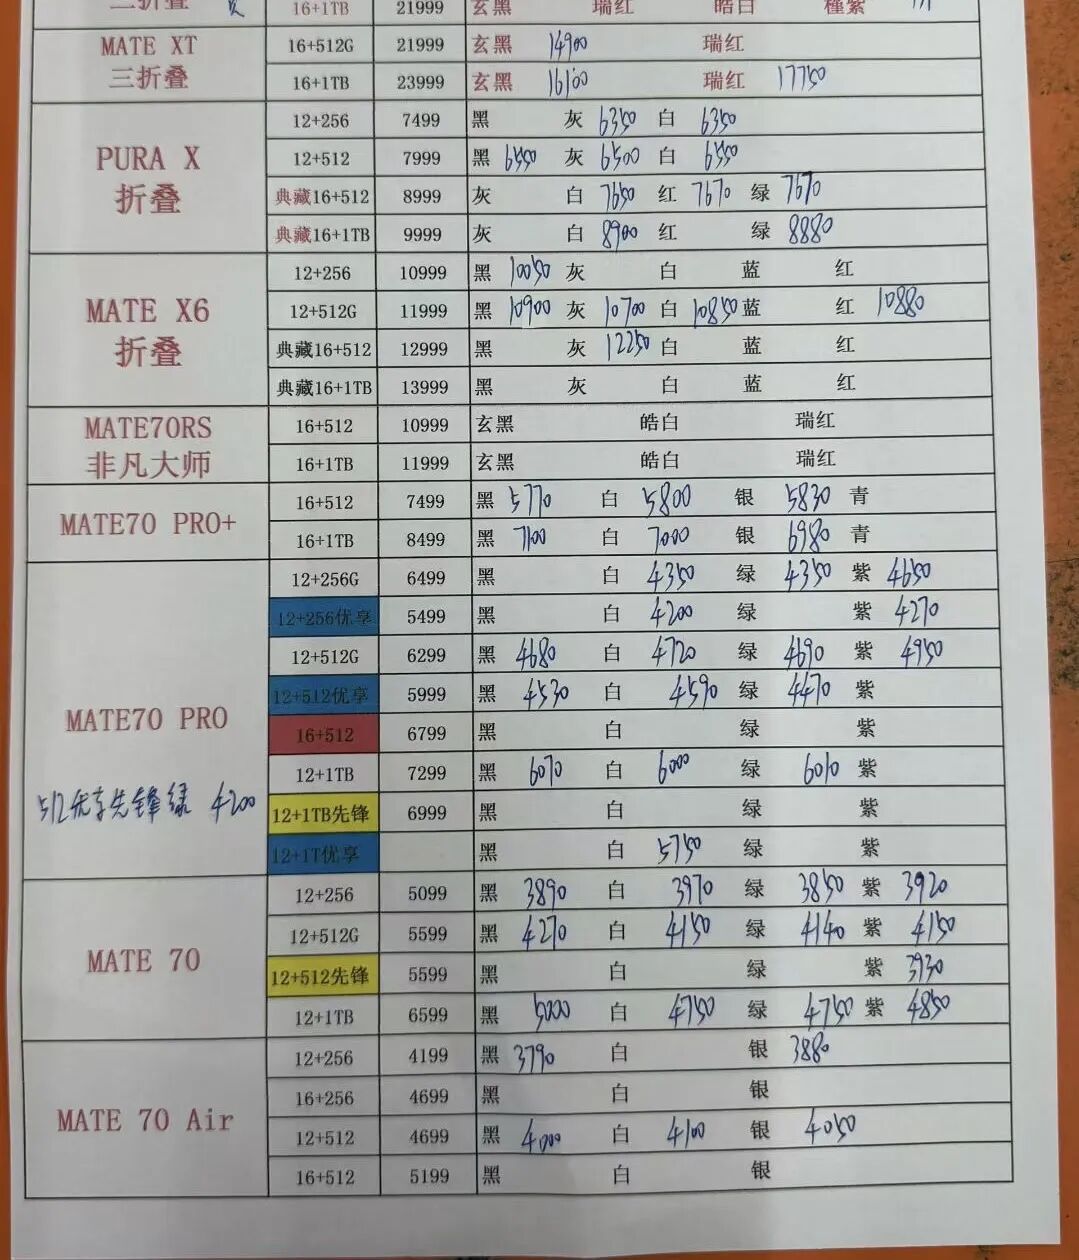 三折叠 16+1TB 21999 玄黑 瑞红 皓白 槿紫
MATE XT 16+512G 21999 玄黑 14900 瑞红
三折叠 16+1TB 23999 玄黑 16100 瑞红 17750
12+256 7499 黑 灰 6350 白 6350
PURA X 12+512 7999 黑 6550 灰 6500 白 6550
折叠 典藏16+512 8999 灰 白 7650 红 7670 绿 7670
典藏16+1TB 9999 灰 白 8900 红 绿 8880
12+256 10999 黑 10050 灰 白 蓝 红
MATE X6 12+512G 11999 黑 10900 灰 10700 白 10850 蓝 红 10880
折叠 典藏16+512 12999 黑 灰 12250 白 蓝 红
典藏16+1TB 13999 黑 灰 白 蓝 红
MATE70RS 16+512 10999 玄黑 皓白 瑞红
非凡大师 16+1TB 11999 玄黑 皓白 瑞红
MATE70 PRO+ 16+512 7499 黑 5770 白 5800 银 5830 青
16+1TB 8499 黑 7100 白 7000 银 6980 青
12+256G 6499 黑 白 4350 绿 4350 紫 4650
12+256优享 5499 黑 白 4200 绿 紫 4270
12+512G 6299 黑 4680 白 4720 绿 4690 紫 4950
MATE70 PRO 12+512优享 5999 黑 4530 白 4590 绿 4470 紫
16+512 6799 黑 白 绿 紫
12+1TB 7299 黑 6070 白 6000 绿 6010 紫
512优享先锋绿 4200 12+1TB先锋 6999 黑 白 绿 紫
12+1T优享 黑 白 5750 绿 紫
12+256 5099 黑 3890 白 3970 绿 3850 紫 3920
MATE 70 12+512G 5599 黑 4270 白 4150 绿 4140 紫 4150
12+512先锋 5599 黑 白 绿 紫 3930
12+1TB 6599 黑 5000 白 4750 绿 4750 紫 4850
12+256 4199 黑 3790 白 银 3880
MATE 70 Air 16+256 4699 黑 白 银
12+512 4699 黑 4000 白 4100 银 4050
16+512 5199 黑 白 银